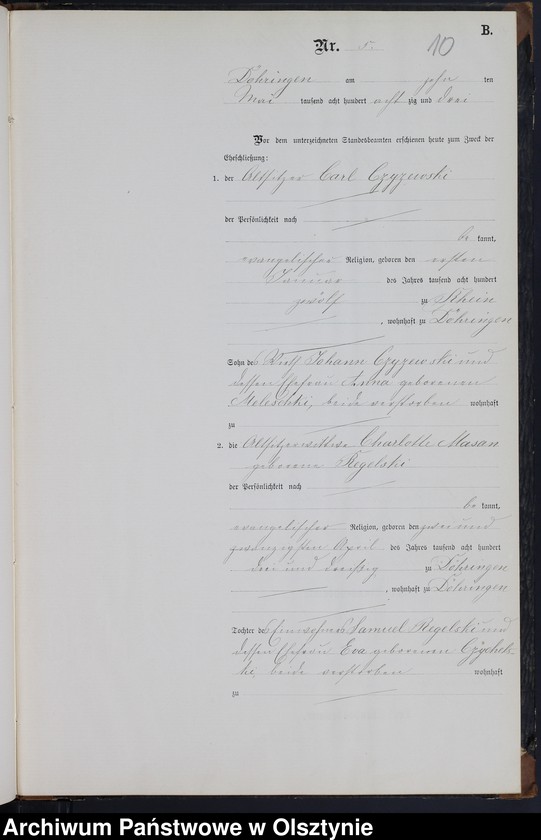 B.
Nr. 5. 10
Döhringen am zehn ten
Mai tausend acht hundert acht zig und drei
Vor dem unterzeichneten Standesbeamten erschienen heute zum Zweck der
Eheschließung:
1. der Altsitzer Carl Czyzewski
der Persönlichkeit nach
be kannt,
evangelischer Religion, geboren den ersten
Januar des Jahres tausend acht hundert
zwölf zu Rhein
, wohnhaft zu Döhringen
Sohn des Wirth Johann Czyzewski und
dessen Ehefrau Anna geborenen
beide verstorben wohnhaft
zu
2. die Altsitzerwittwe Charlotte Masan
geborene Regelski
der Persönlichkeit nach
be kannt,
evangelischer Religion, geboren den zwei und
zwanzigsten April des Jahres tausend acht hundert
drei und dreißig zu Döhringen
, wohnhaft zu Döhringen
Tochter des Einwohners Samuel Regelski und
dessen Ehefrau Eva geborenen
beide verstorben wohnhaft
zu
Archiwum Państwowe w Olsztynie